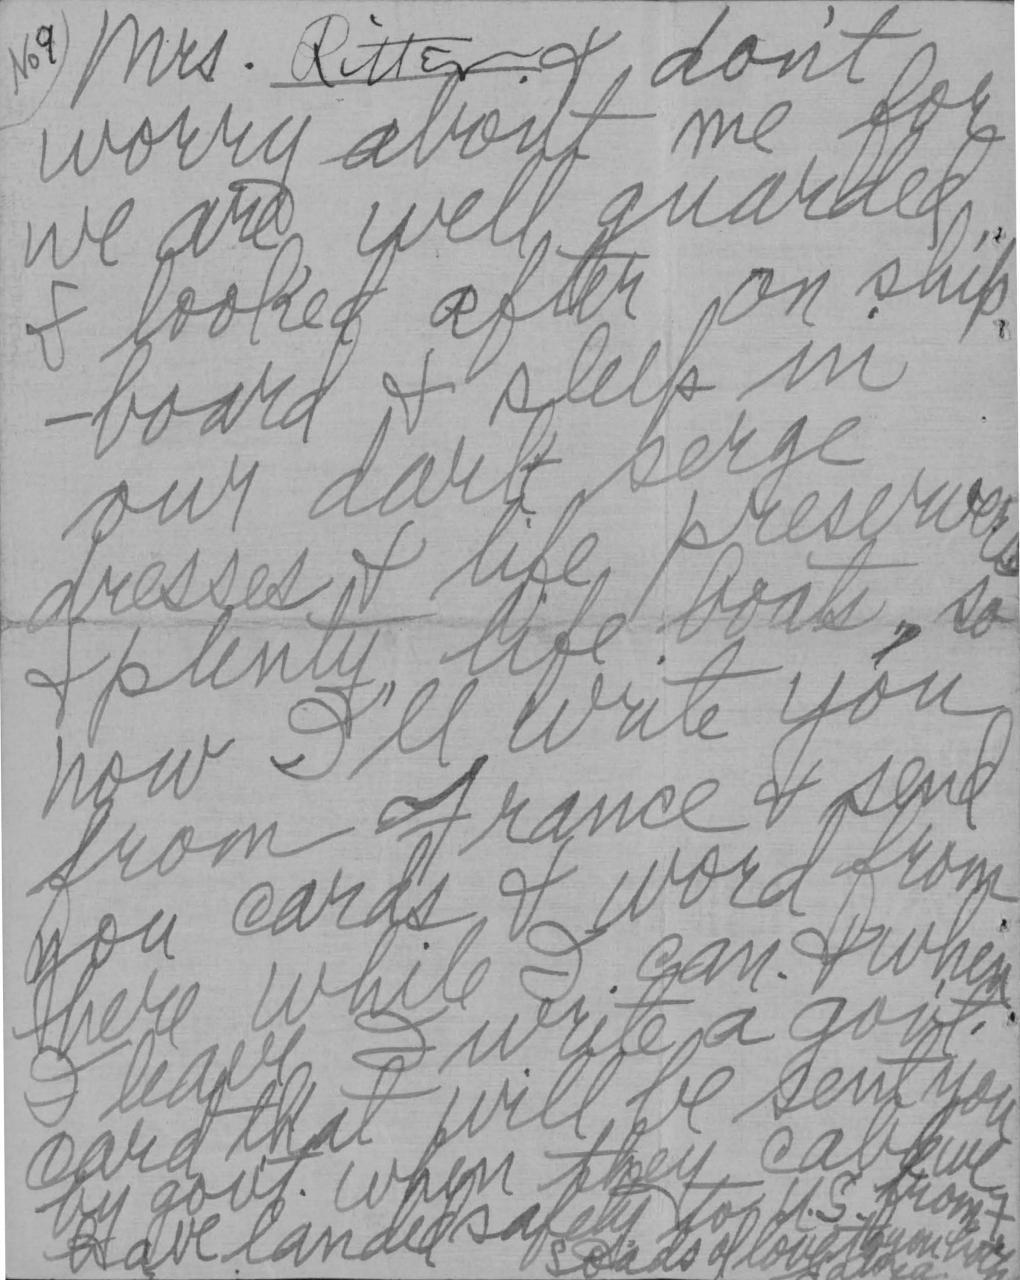 No 9) Mrs. Ritter & don't
worry about me for
we are well guarded,
& looked after on ship
-board & sleep in
our dark serge
dresses & life preservers
& plenty life boats, so
now I'll write you
from France & send
you cards & word from
there while I can. & when
I leave I write a gov't.
card that will be sent you
by gov't. when they cable we
have landed safely to U.S. from
Loads of love to you